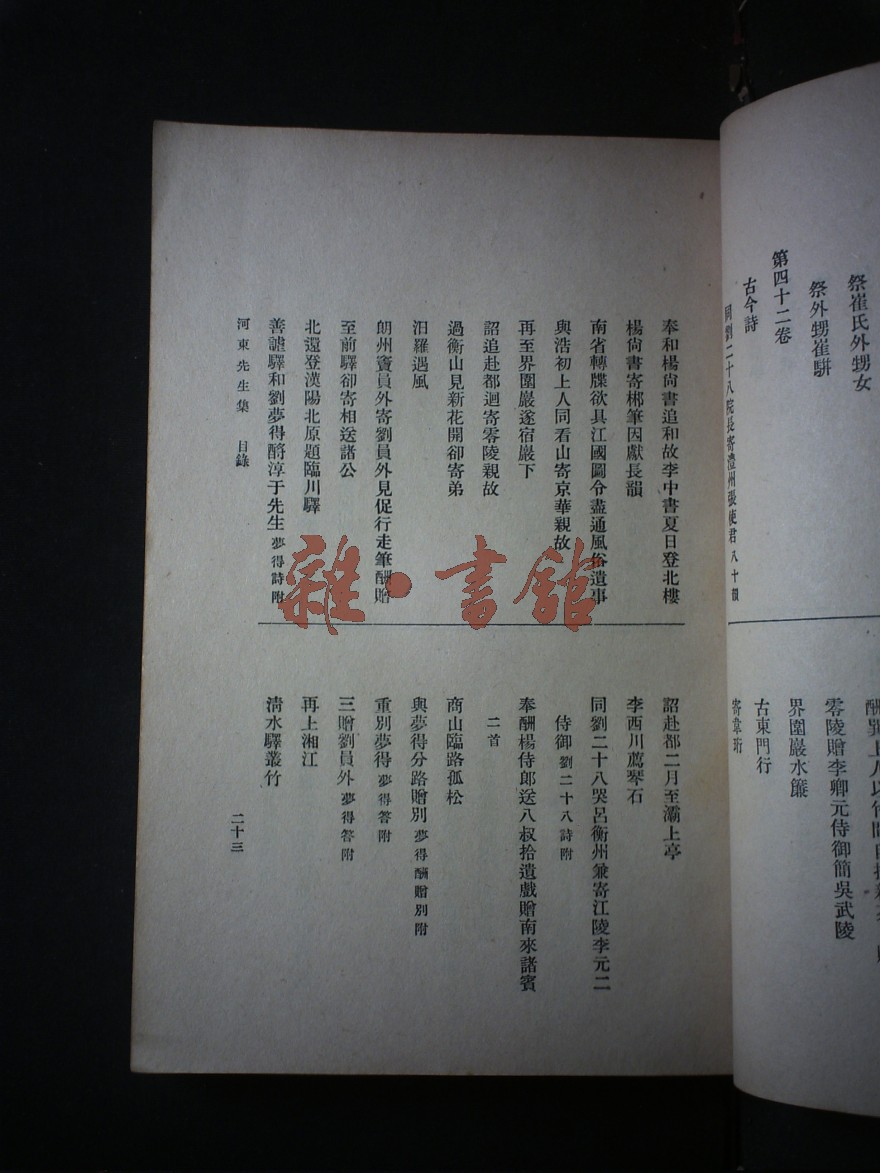 祭崔氏外甥女
祭外甥崔駢
第四十二卷
古今詩
同劉二十八院長寄澧州張使君八十韻
零陵贈李卿元侍御簡吳武陵
界圍巖水簾
古東門行
寄韋珩
奉和楊尙書追和故李中書夏日登北樓
楊尙書寄郴筆因獻長韻
南省轉牒欲具江國圖令盡通風俗遺事
與浩初上人同看山寄京華親故
再至界圍巖遂宿巖下
詔追赴都迴寄零陵親故
過衡山見新花開卻寄弟
汨羅遇風
朗州竇員外寄劉員外見促行走筆酬贈
至前驛卻寄相送諸公
北還登漢陽北原題臨川驛
善謔驛和劉夢得酹淳于先生 夢得詩附
詔赴都二月至灞上亭
李西川薦琴石
同劉二十八哭呂衡州兼寄江陵李元二
侍御 劉二十八詩附
奉酬楊侍郎送八叔拾遺戲贈南來諸賓
二首
商山臨路孤松
與夢得分路贈別 夢得酬贈別附
重別夢得 夢得答附
三贈劉員外 夢得答附
再上湘江
清水驛叢竹
河東先生集 目錄
二十三
雜·書館